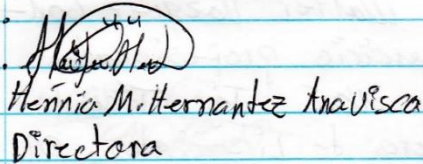 Hennia M. Hernantez Anavisca
Directora